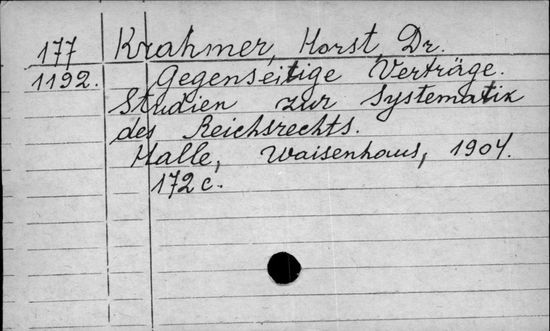 177 Krahmer, Horst, Dr.
1192. Gegenseitige Verträge.
Studien zur Systematik
des Reichsrechts.
Halle, Waisenhaus, 1904.
172 c.